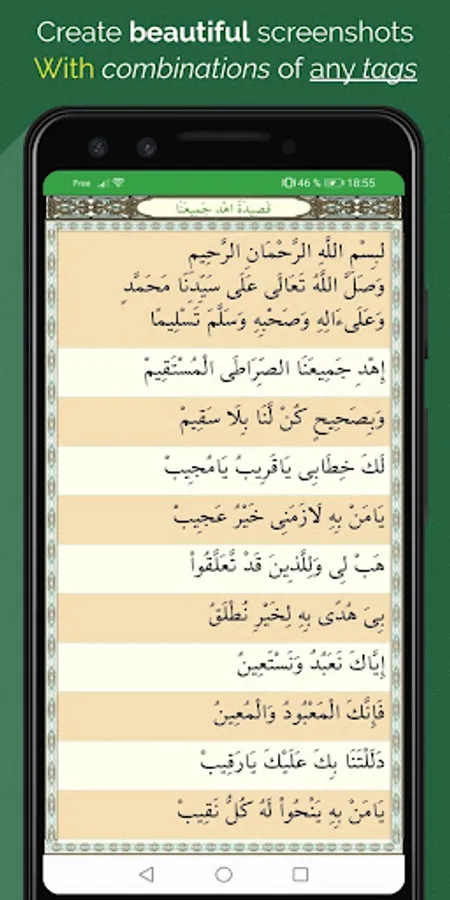 Create beautiful screenshots
With combinations of any tags
Free 46 % 18:55
قَصِيدَةُ اهْدِ جَمِيعَنَا
لبِسْمِ اللَّهِ الرَّحْمَانِ الرَّحِيمِ
وَصَلَّ اللَّهُ تَعَالَى عَلَى سَيِّدِنَا مَحَمَّدٍ
وَعَلَىءَالِهِ وَصَحْبِهِ وَسَلَّمَ تَسْلِيمًا
إِهْدِ جَمِيعَنَا الصِّرَاطَى الْمُسْتَقِيمْ
وَبِصَحِيحٍ كُنْ لَّنَا بِلَا سَقِيمْ
لَكَ خِطَابِى يَاقَرِيبُ يَامُجِيبْ
يَامَنْ بِهِ لَازَمَنِى خَيْرُ عَجِيبْ
هَبْ لِى وَلِلَّذِينَ قَدْ تَّعَلَّقُواْ
بِىَ هُدًى بِهِ لِخَيْرٍ نُطْلَقُ
إِيَّاكَ نَعَبُدُ وَنَسْتَعِينُ
فَإِنَّكَ الْمَعْبُودُ وَالْمُعِينُ
دَلَلْتَنَا بِكَ عَلَيْكَ يَارَقِيبْ
يَامَنْ بِهِ يَنْحُواْ لَهُ كُلُّ نَقِيبْ